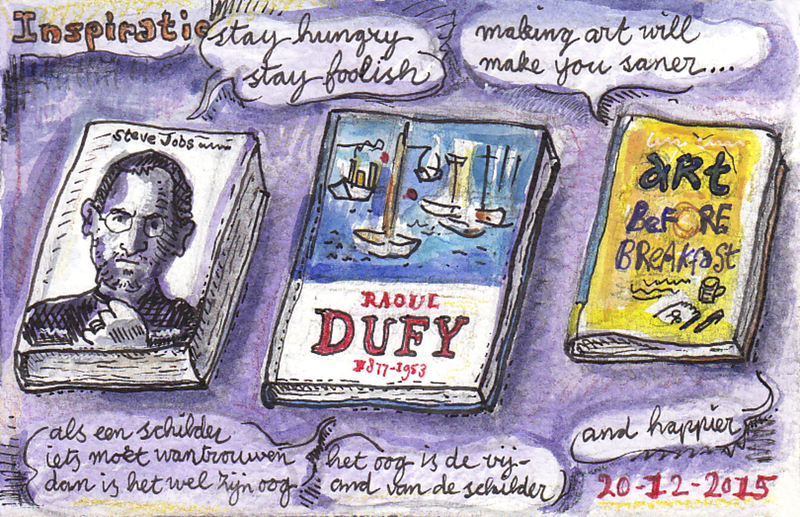 Inspiratie
stay hungry
stay foolish
making art will
make you saner...
Steve Jobs
RAOUL
DUFY
1877-1953
art
BeFORE
BREAKfaSt
als een schilder
iets moet wantrouwen
dan is het wel zijn oog
het oog is de vij-
and van de schilder
and happier
20-12-2015